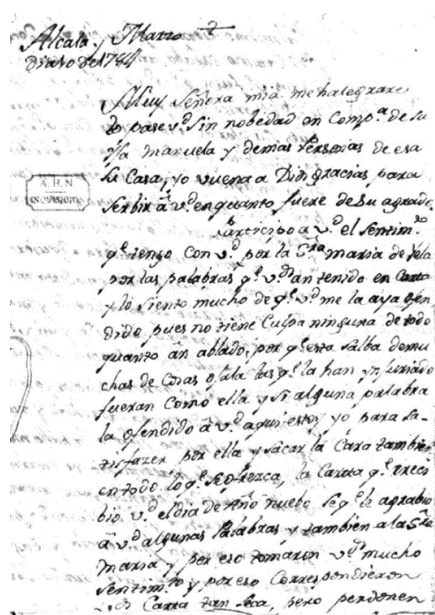 Alcala, y Marzo
de 1784
Muy Señora mia me halegrare
lo pase vd. sin nobedad en Compa. de su
Ija Manuela y demas Personas de esa
su Casa, yo buena a Dios gracias para
serbir a vd. en quanto fuere de su agrado.
A. H. N.
INQUISICION
Participo a vd. el sentimto.
qe. tengo con vd. por la Sra. maria de
por las palabras qe. vds. an tenido en Carta
y lo siento mucho de qe. vd. me la aya ofen
dido pues no tiene Culpa ninguna de todo
quanto an ablado, por qe. esta salba de mu
chas de Cosas ojala las qe. la han ynjuriado
fueran Como ella y si alguna palabra
la ofendido a vd. aqui estoy yo para sa-
tisfazer por ella y sacar la Cara tambien
en todo lo qe. se ofrezca, la Carta qe. reci
bio vd. el dia de Año nuebo se qe. le agrabio
a vd. algunas Palabras y tambien a la Sra.
maria y por eso tomaron vds. mucho
sentimto. y por eso Correspondieron
Carta tan seca, pero perdonen